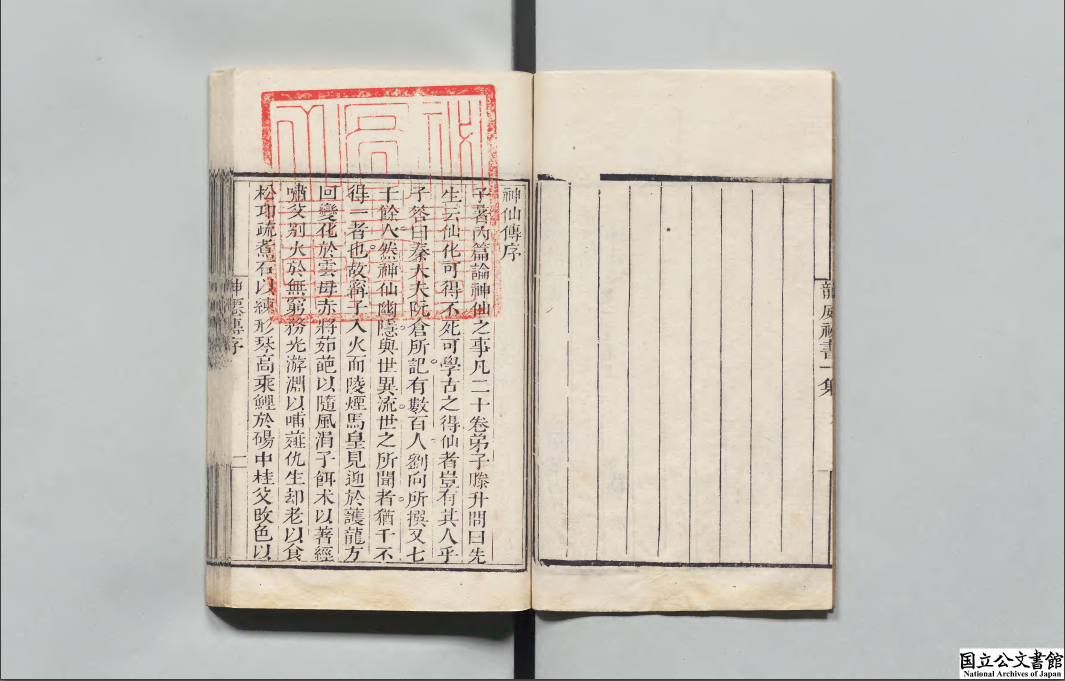 龍威秘書一集
神仙傳序
予著內篇論神仙之事凡二十卷弟子滕升問曰先
生云仙化可得不死可學古之得仙者豈有其人乎
予答曰秦大夫阮倉所記有數百人劉向所撰又七
十餘人然神仙幽隱與世異流世之所聞者猶千不
得一者也故甯子入火而陵煙馬皇見迎於護龍方
回變化於雲母赤將茹葩以隨風涓子餌术以著經
嘯父別火於無窮務光游淵以哺薤仇生却老以食
松邛疏煮石以練形琴高乘鯉於碭中桂父改色以
神僊傳序 一
国立公文書館
National Archives of Japan